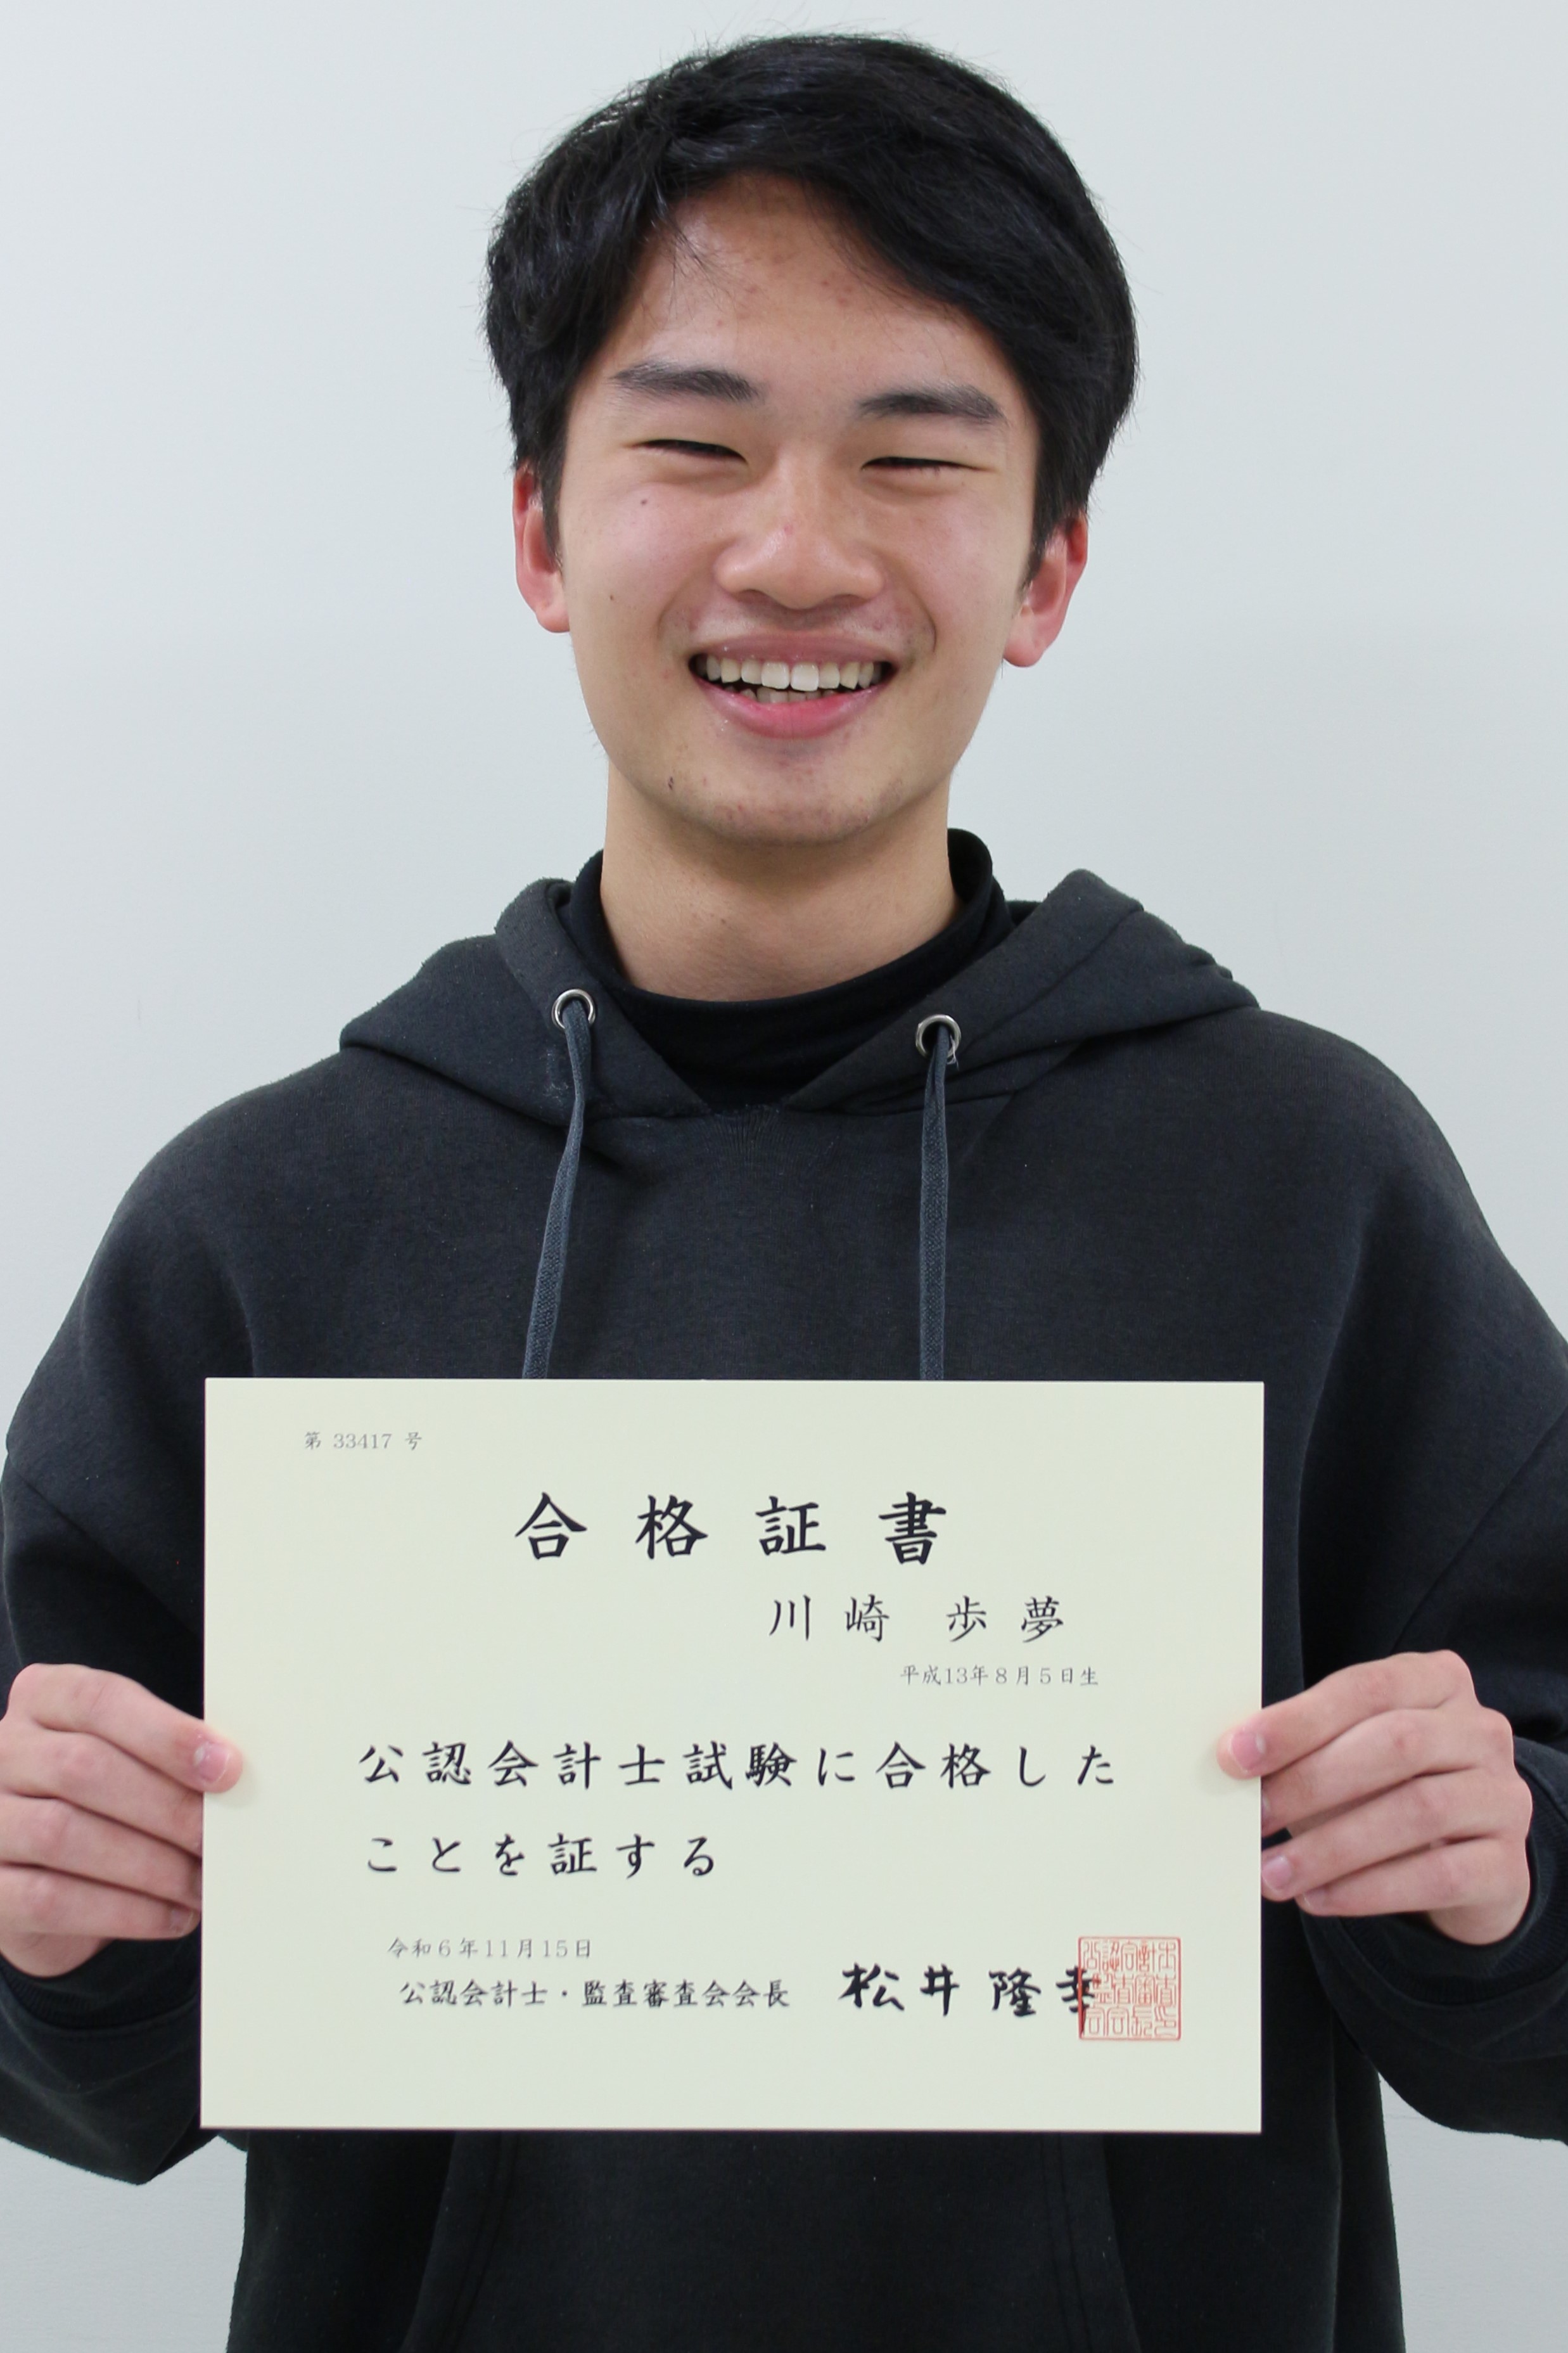 第 33417 号
合格証書
川崎 歩夢
平成13年8月5日生
公認会計士試験に合格した
ことを証する
令和6年11月15日
公認会計士・監査審査会会長 松井隆幸